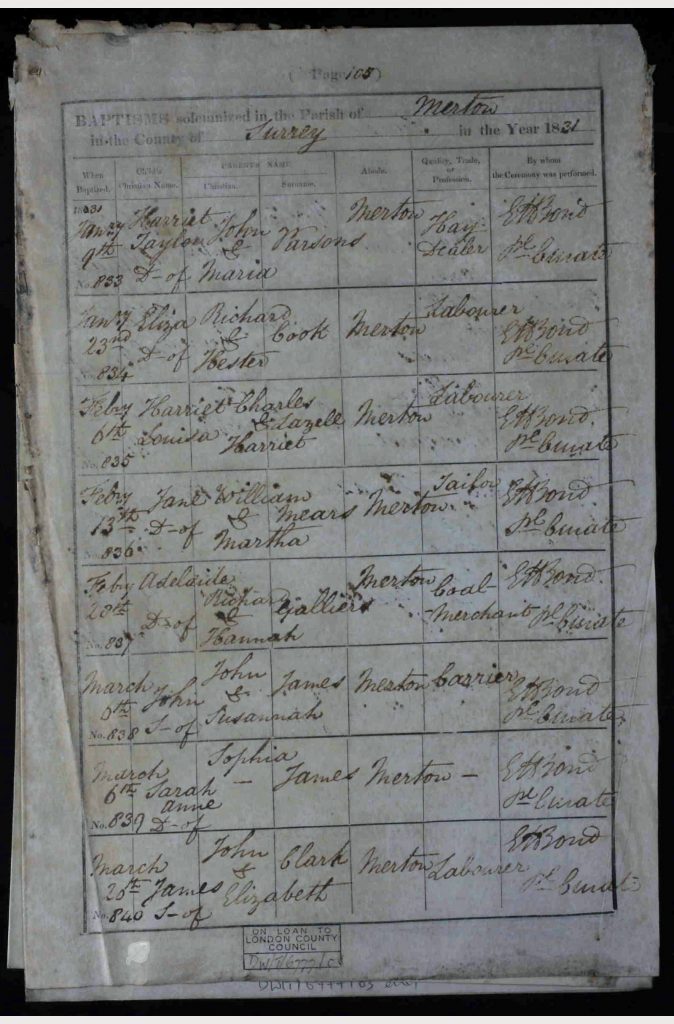 ( Page 105 )
BAPTISMS solemnized in the Parish of Merton
in the County of Surrey in the Year 1831
When Baptized. Child's Christian Name. PARENTS NAME Christian. Surname. Abode. Quality, Trade, or Profession. By whom the Ceremony was performed.
1831
Jany 9th No. 833 Harriet Taylor D- of John & Maria Parsons Merton Hay Dealer Pl Curate
Jany 23rd No. 834 Eliza D- of Richard & Hester Cook Merton Labourer Pl Curate
Feby 6th No. 835 Harriet Louisa Charles & Harriet Lazell Merton Labourer Pl Curate
Feby 13th No. 836 Jane D- of William & Martha Mears Merton Tailor Pl Curate
Feby 20th No. 837 Adelaide D- of Richard & Hannah Galliers Merton Coal Merchant Pl Curate
March 6th No. 838 John S- of John & Susannah James Merton Carrier Pl Curate
March 6th No. 839 Sarah Anne D- of Sophia - James Merton - Pl Curate
March 20th No. 840 James S- of John & Elizabeth Clark Merton Labourer Pl Curate
ON LOAN TO
LONDON COUNTY
COUNCIL